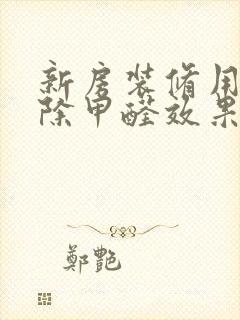 新房装修用
除甲醛效果
鄭艷